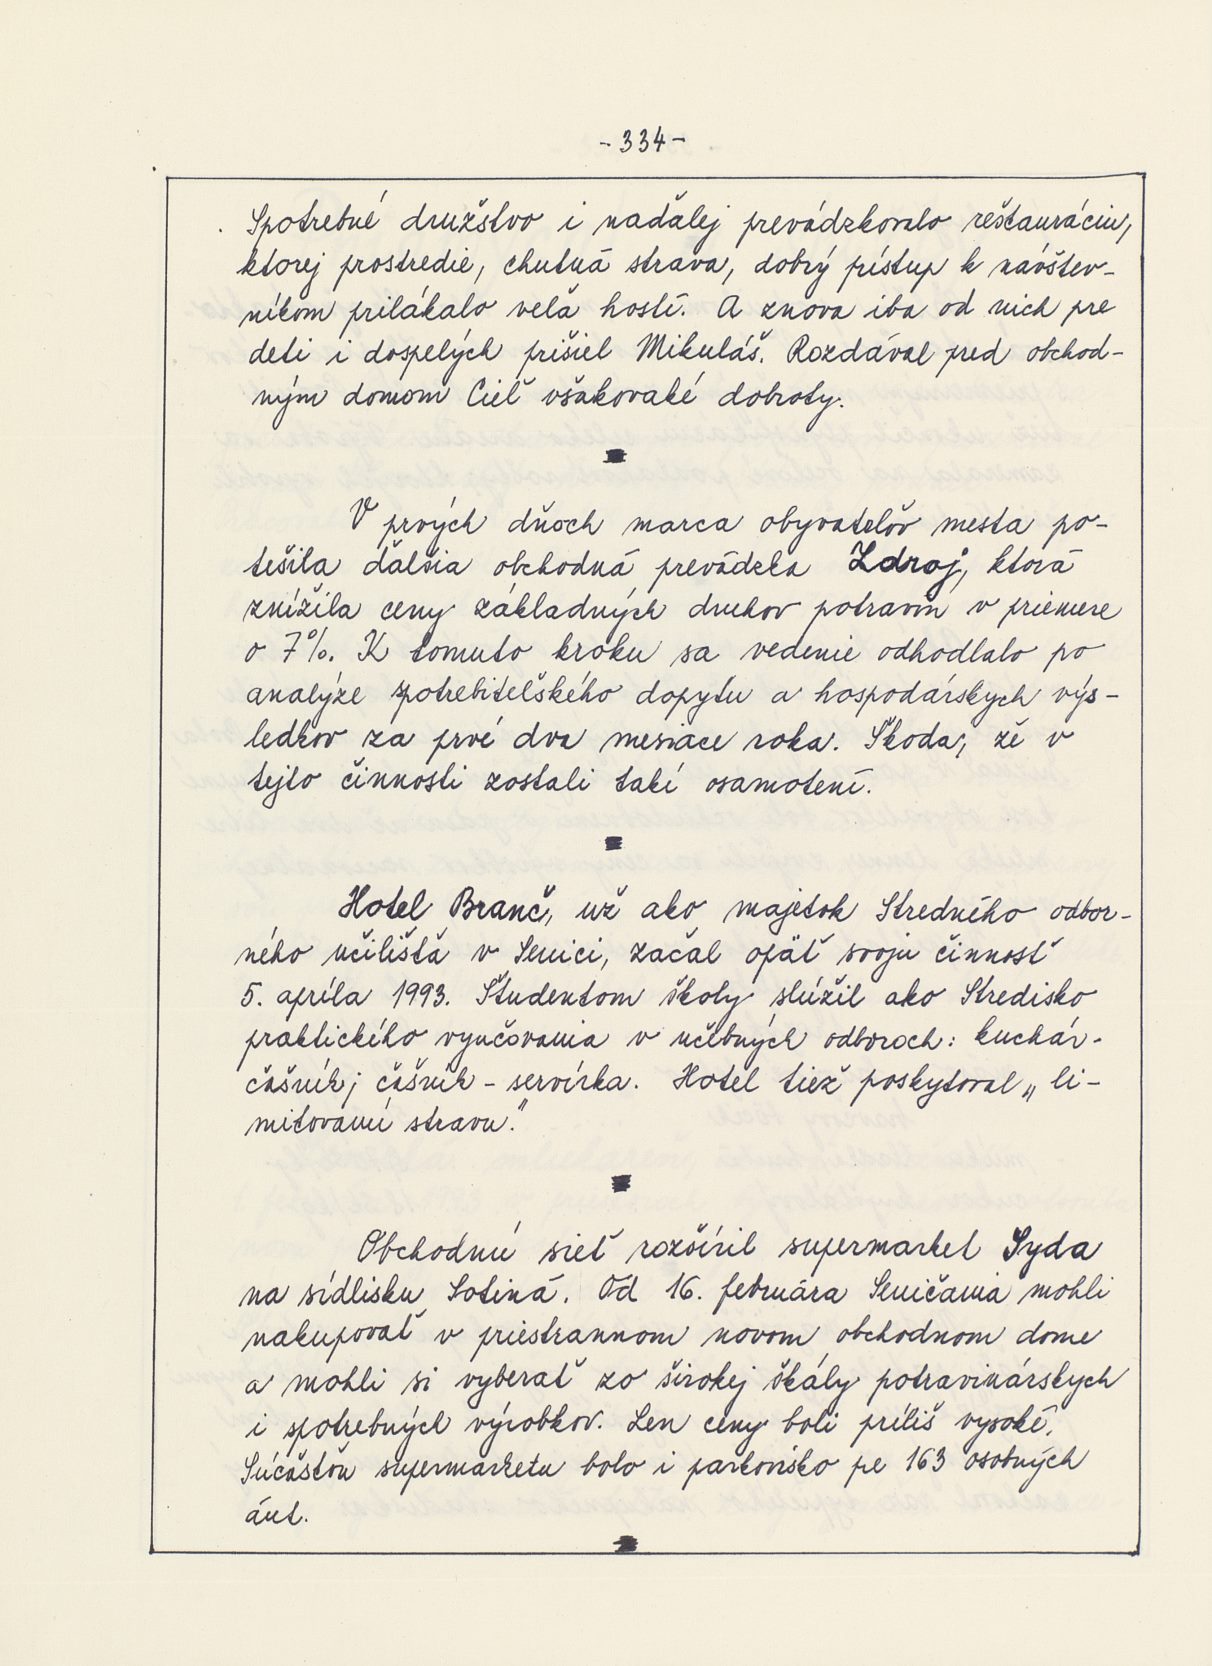 - 334 -
Spotrebné družstvo i naďalej prevádzkovalo reštauráciu,
ktorej prostredie, chutná strava, dobrý prístup k návštev-
níkom prilákalo veľa hostí. A znova iba od nich pre
deti i dospelých prišiel Mikuláš. Rozdával pred obchod-
ným domom Cieľ všakovaké dobroty.
V prvých dňoch marca obyvateľov mesta po-
tešila ďalšia obchodná prevádzka Zdroj, ktorá
znížila ceny základných druhov potravín v priemere
o 7%. K tomuto kroku sa vedenie odhodlalo po
analýze spotrebiteľského dopytu a hospodárskych výs-
ledkov za prvé dva mesiace roka. Škoda, že v
tejto činnosti zostali takí osamotení.
Hotel Branč, už ako majetok Stredného odbor-
ného učilišťa v Senici, začal opäť svoju činnosť
5. apríla 1993. Študentom školy slúžil ako Stredisko
praktického vyučovania v učebných odboroch: kuchár-
čašník; čašník - servírka. Hotel tiež poskytoval „li-
mitovanú stravu."
Obchodnú sieť rozšíril supermarket Syda
na sídlisku Sotiná. Od 16. februára Seničania mohli
nakupovať v priestrannom novom obchodnom dome
a mohli si vyberať zo širokej škály potravinárskych
i spotrebných výrobkov. Len ceny boli príliš vysoké.
Súčasťou supermarketu bolo i parkovisko pe 163 osobných
áut.